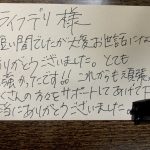 ライフデリ 様
短い間でしたが大変お世話にな
ありがとうございました。とても
強かったです!! これからも頑張
さんの方々をサポートしてあげて下
当にありがとうございました。